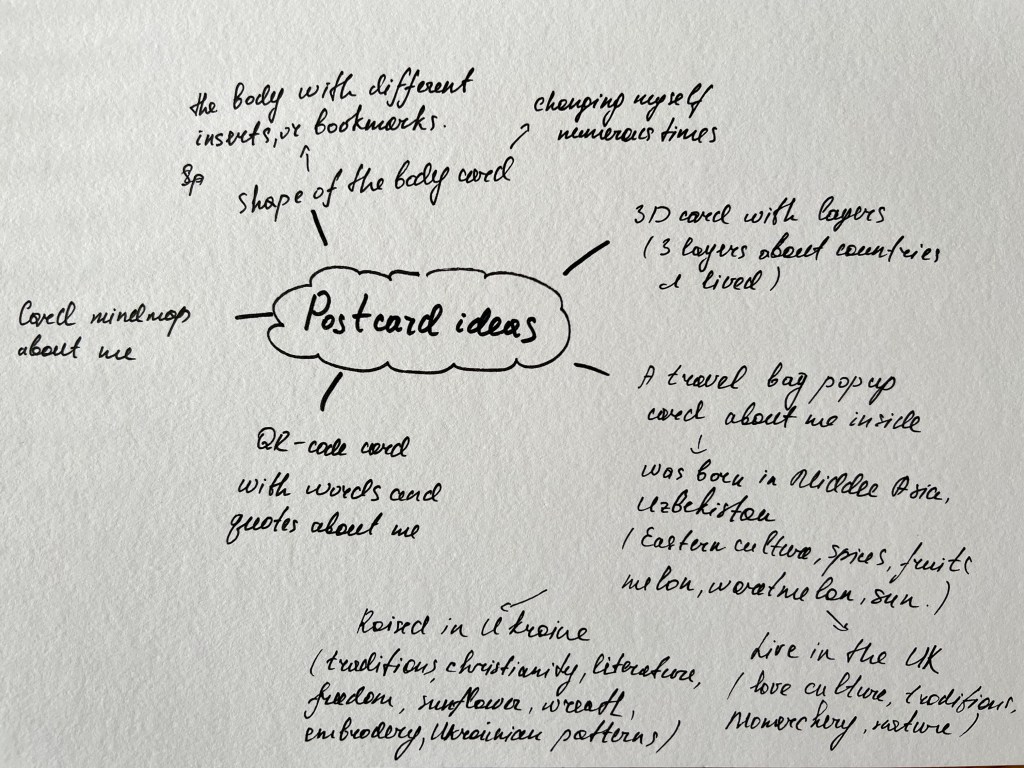 the body with different
inserts, or bookmarks.
changing myself
numerous times
Sp
shape of the body card
3D card with layers
( 3 layers about countries
I lived )
Postcard ideas
Card mindmap
about me
A travel bag pop up
card about me inside
was born in Middle Asia,
Uzbekistan
( Eastern culture, spices, fruits
melon, waretmelon, sun. )
QR-code card
with words and
quotes about me
Raised in Ukraine
( traditions, christianity, literature,
freedom, sunflower, wreath,
embrodery, Ukrainian patterns )
Live in the UK
( love culture, traditions,
Monarchery, nature )